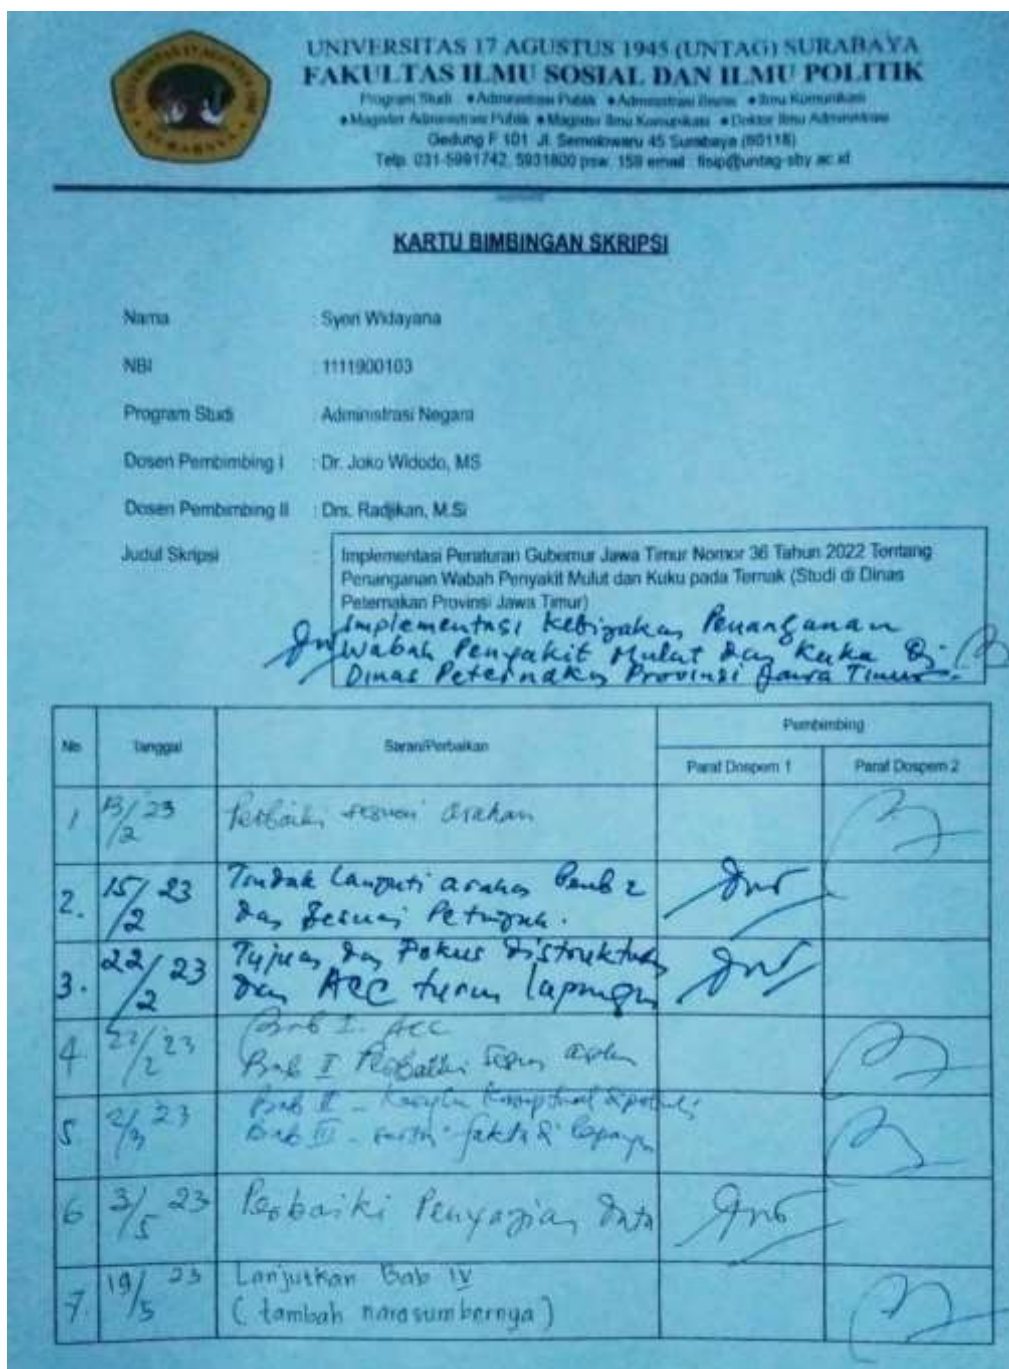 UNIVERSITAS 17 AGUSTUS 1945 (UNTAG) SURABAYA
FAKULTAS ILMU SOSIAL DAN ILMU POLITIK
Program Studi : ● Administrasi Publik ● Administrasi Bisnis ● Ilmu Komunikasi
● Magister Administrasi Publik ● Magister Ilmu Komunikasi ● Doktor Ilmu Administrasi
Gedung F 101 Jl. Semolowaru 45 Surabaya (60118)
Telp. 031-5991742, 5931800 psw. 159 email : fisip@untag-sby.ac.id
KARTU BIMBINGAN SKRIPSI
Nama : Syeri Widayana
NBI : 1111900103
Program Studi : Administrasi Negara
Dosen Pembimbing I : Dr. Joko Widodo, MS
Dosen Pembimbing II : Drs. Radjikan, M.Si
Judul Skripsi : Implementasi Peraturan Gubernur Jawa Timur Nomor 36 Tahun 2022 Tentang
Penanganan Wabah Penyakit Mulut dan Kuku pada Ternak (Studi di Dinas
Peternakan Provinsi Jawa Timur)
Implementasi Kebijakan Penanganan
Wabah Penyakit Mulut dan Kuku Di
Dinas Peternakan Provinsi Jawa Timur.
No Tanggal Saran/Perbaikan Pembimbing
Paraf Dospem 1 Paraf Dospem 2
1 13/2 23 Perbaiki sesuai arahan
2. 15/2 23 Tindak lanjuti arahan Pemb 2
dan sesuai Petunjuk.
3. 22/2 23 Tujuan dan Fokus distruktur
dan ACC turun lapangan
4. 27/2 23 Bab I. ACC
Bab II Perbaiki sesuai arahan
5 2/3 23 Bab II - Konseptual
Bab III - fakta di lapangan
6 3/5 23 Perbaiki Penyajian Data
7. 19/5 23 Lanjutkan Bab IV
( tambah narasumbernya )